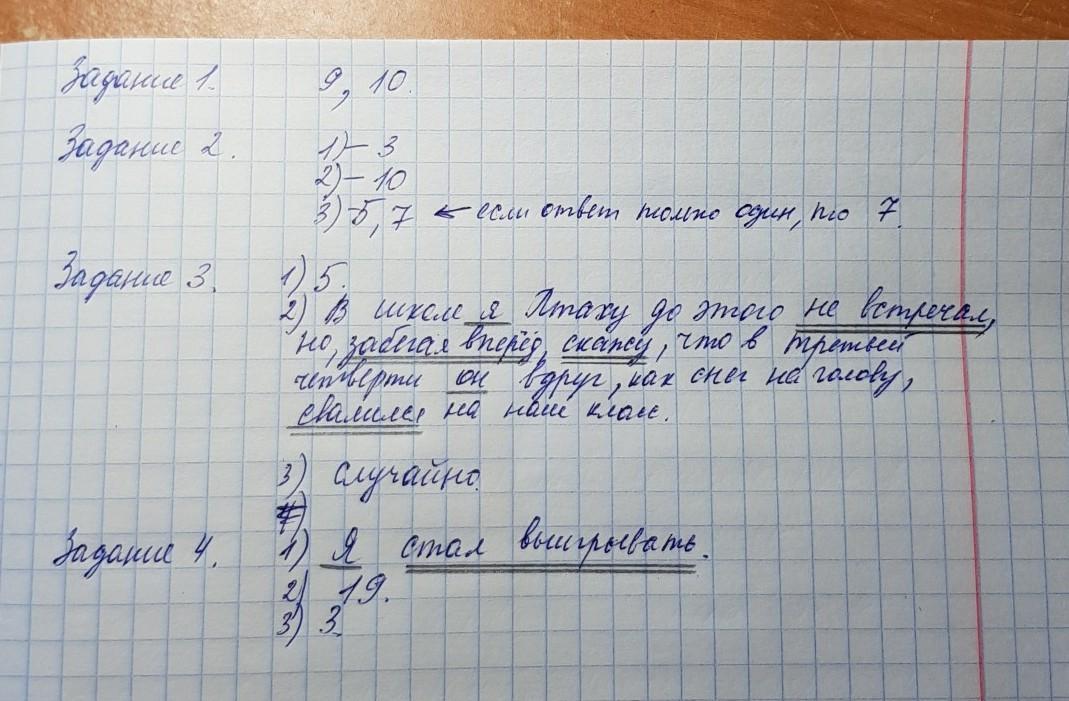 Задание 1. 9, 10.
Задание 2. 1) – 3
2) – 10
3) – 5, 7 ← если ответ только один, то 7.
Задание 3. 1) 5.
2) В школе я Птаху до этого не встречал,
но, забегая вперёд, скажу, что в третьей
четверти он вдруг, как снег на голову,
свалился на наш класс.
3) Случайно.
4)
Задание 4. 1) Я стал выигрывать.
2) 19.
3) 3.